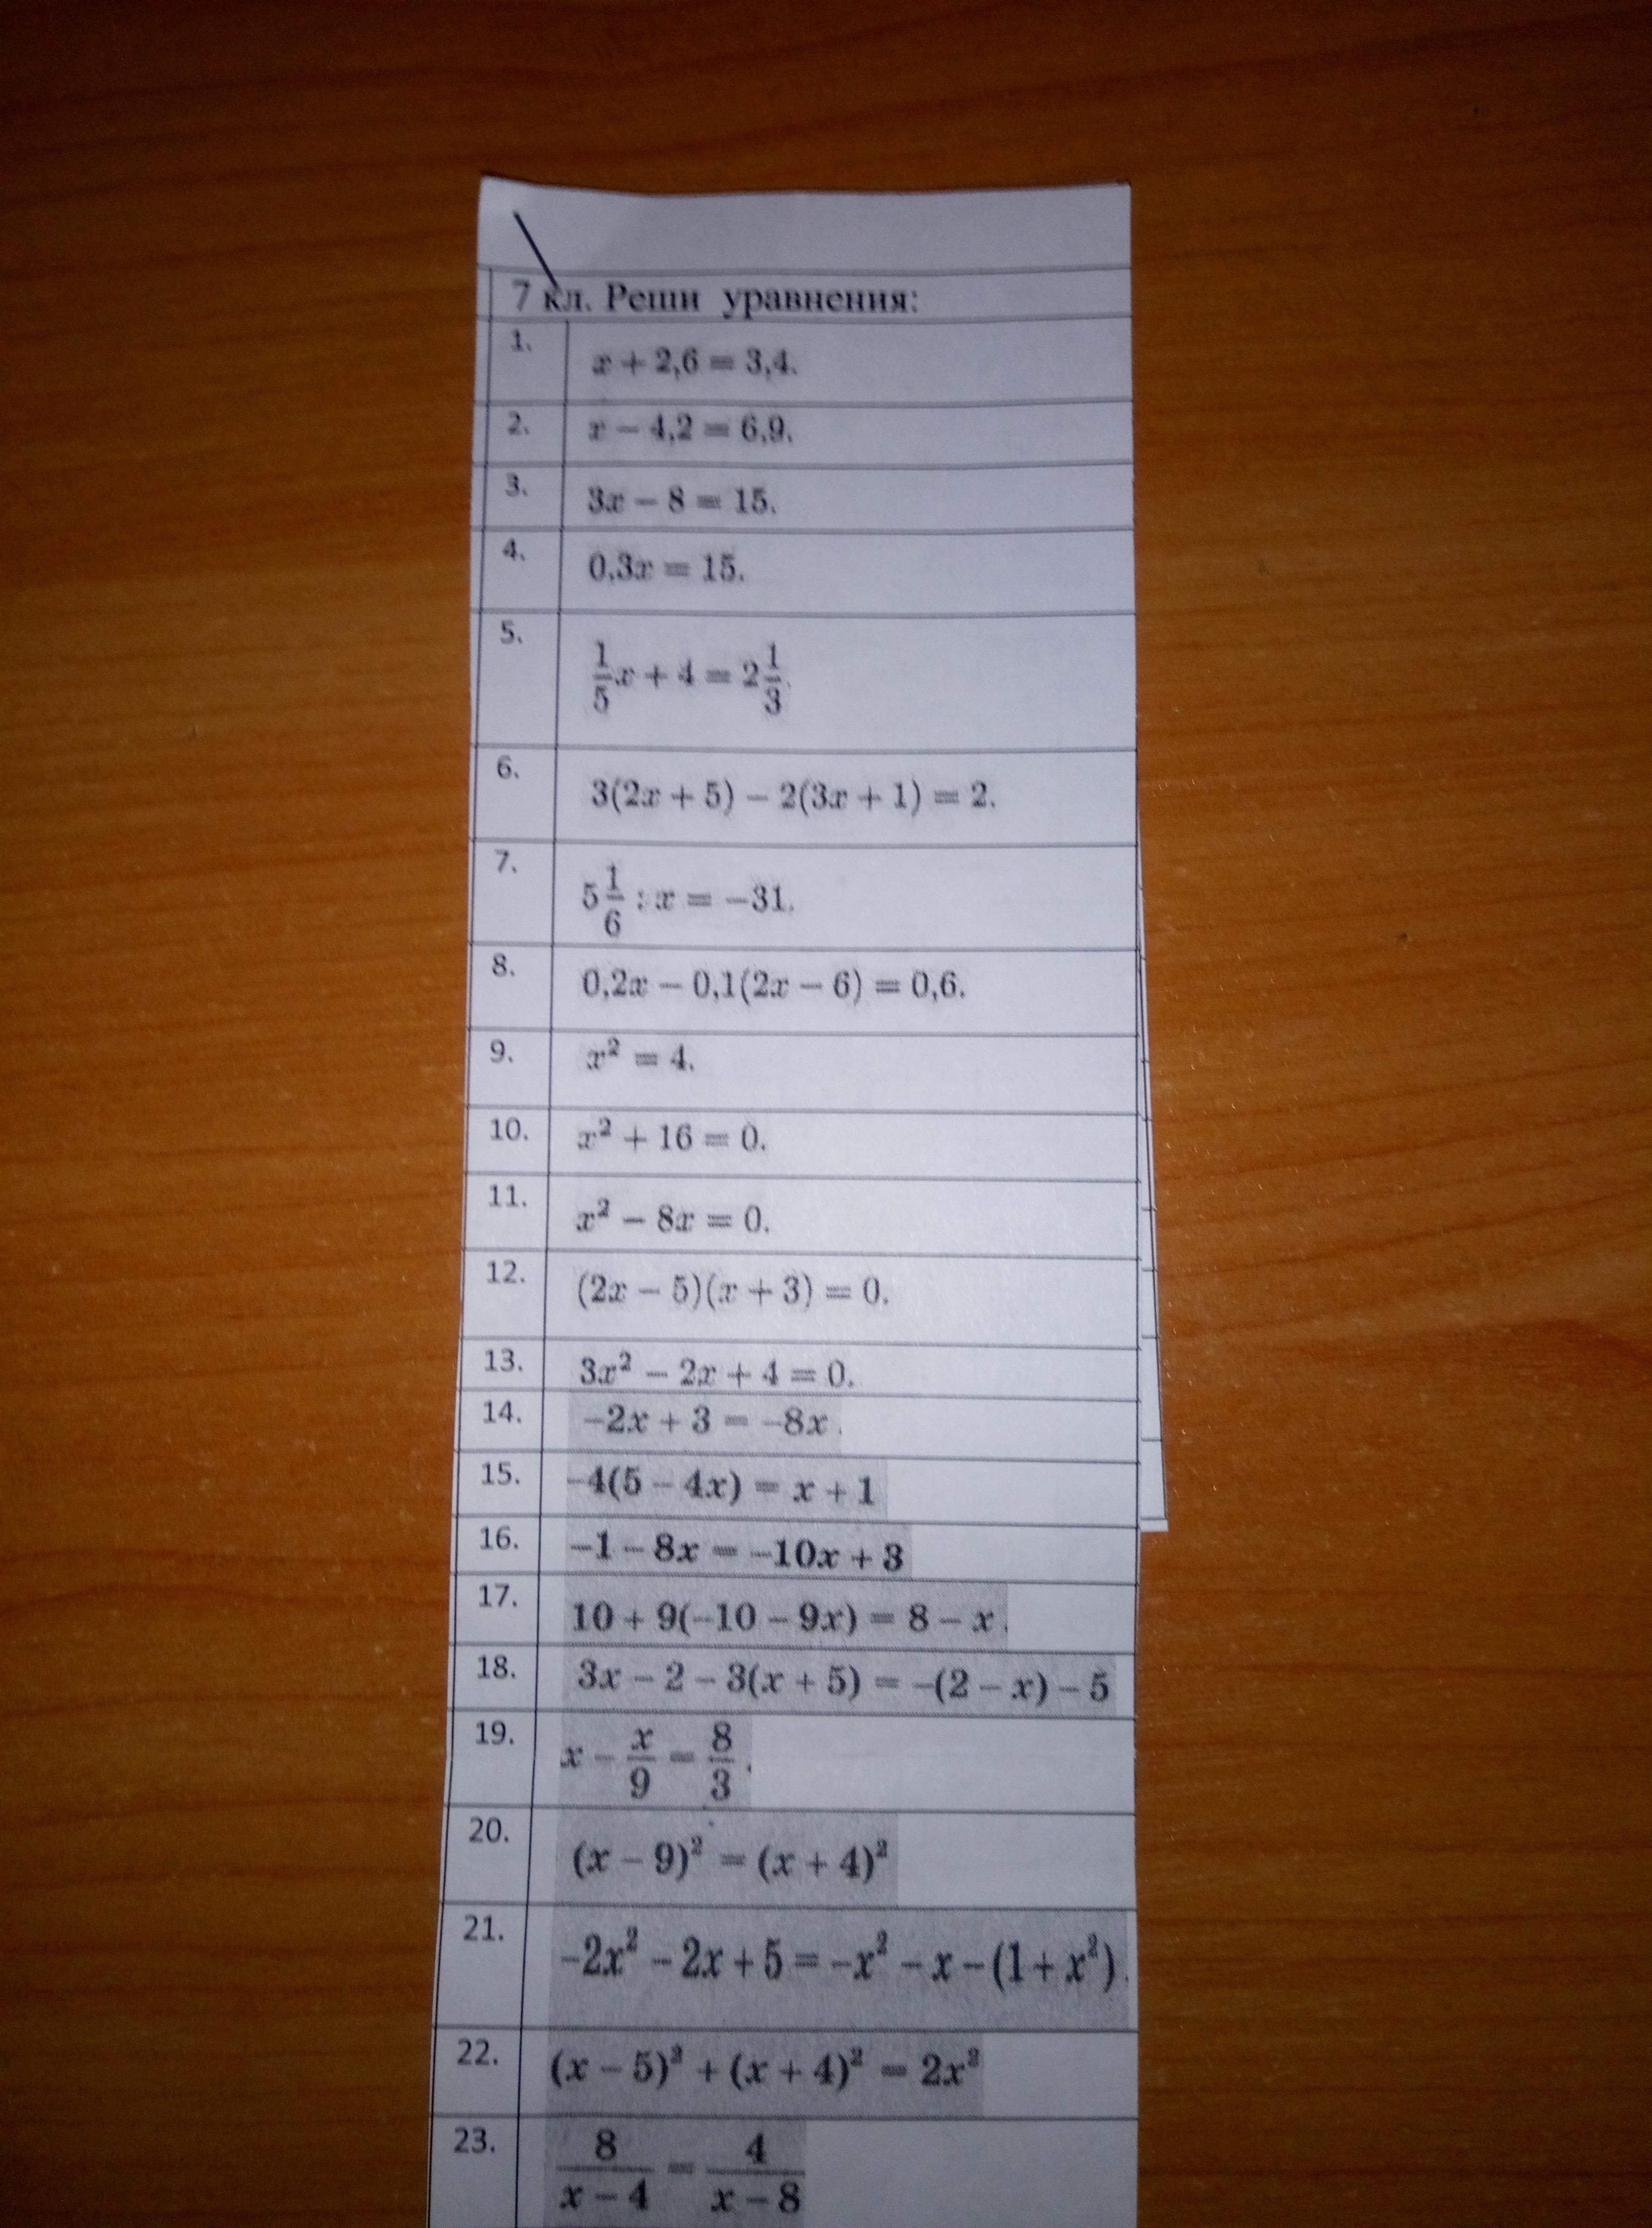 7 кл. Реши уравнения:
1. x + 2,6 = 3,4.
2. x − 4,2 = 6,9.
3. 3x − 8 = 15.
4. 0,3x = 15.
5. 1/5 x + 4 = 2 1/3.
6. 3(2x + 5) − 2(3x + 1) = 2.
7. 5 1/6 : x = −31.
8. 0,2x − 0,1(2x − 6) = 0,6.
9. x² = 4.
10. x² + 16 = 0.
11. x² − 8x = 0.
12. (2x − 5)(x + 3) = 0.
13. 3x² − 2x + 4 = 0.
14. −2x + 3 = −8x.
15. −4(5 − 4x) = x + 1
16. −1 − 8x = −10x + 3
17. 10 + 9(−10 − 9x) = 8 − x.
18. 3x − 2 − 3(x + 5) = −(2 − x) − 5
19. x − x/9 = 8/3.
20. (x − 9)² = (x + 4)²
21. −2x² − 2x + 5 = −x² − x − (1 + x²).
22. (x − 5)² + (x + 4)² = 2x²
23. 8/(x − 4) = 4/(x − 8)